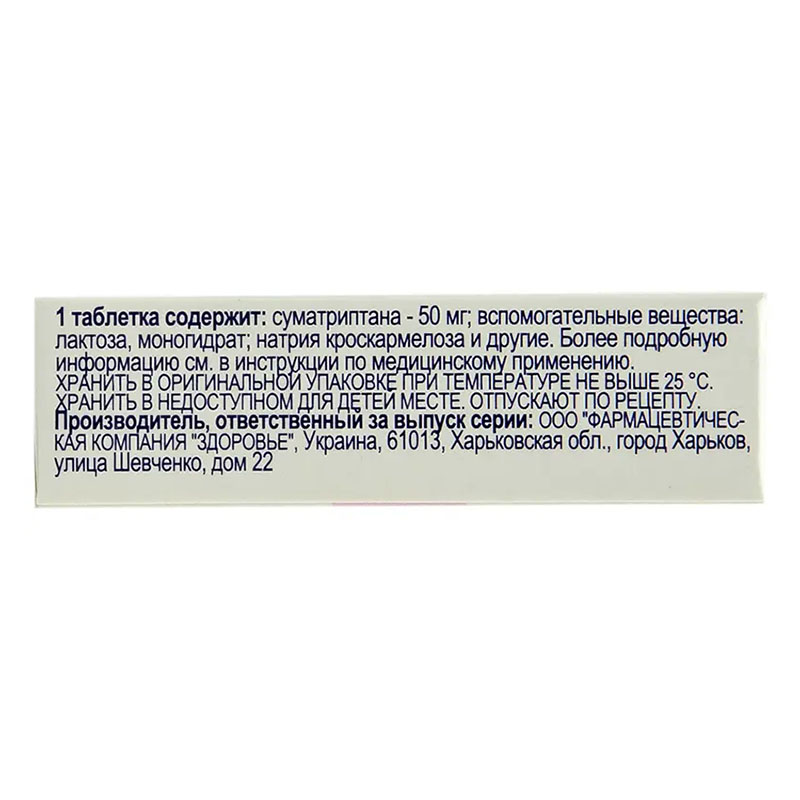 1 таблетка содержит: суматриптана - 50 мг; вспомогательные вещества:
лактоза, моногидрат; натрия кроскармелоза и другие. Более подробную
информацию см. в инструкции по медицинскому применению.
ХРАНИТЬ В ОРИГИНАЛЬНОЙ УПАКОВКЕ ПРИ ТЕМПЕРАТУРЕ НЕ ВЫШЕ 25 °С.
ХРАНИТЬ В НЕДОСТУПНОМ ДЛЯ ДЕТЕЙ МЕСТЕ. ОТПУСКАЮТ ПО РЕЦЕПТУ.
Производитель, ответственный за выпуск серии: ООО "ФАРМАЦЕВТИЧЕС-
КАЯ КОМПАНИЯ "ЗДОРОВЬЕ", Украина, 61013, Харьковская обл., город Харьков,
улица Шевченко, дом 22